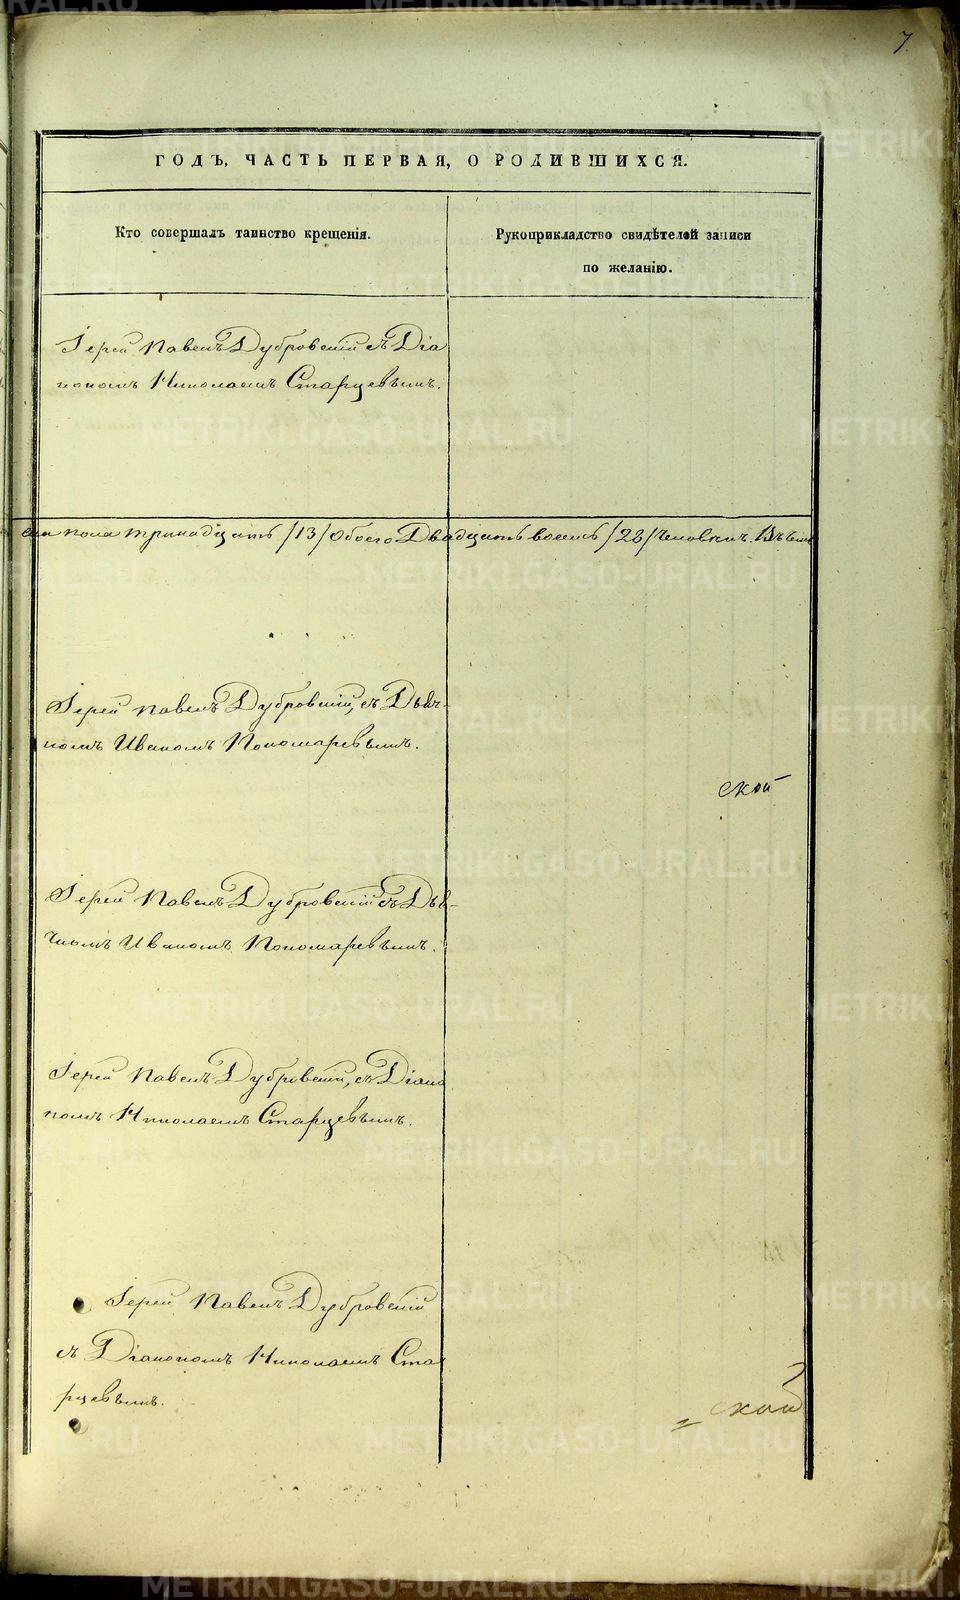 7
ГОДЪ, ЧАСТЬ ПЕРВАЯ, О РОДИВШИХСЯ.
Кто совершалъ таинство крещенія.
Рукоприкладство свидѣтелей записи
по желанію.
Іерей Павелъ Дубровскій съ Діа
кономъ Николаемъ Старцевымъ.
пола тринадцать /13/ обоего Двадцать восемь /28/ человѣкъ.
Іерей Павелъ Дубровскій, съ Дьяч-
комъ Иваномъ Пономаревымъ.
ской
Іерей Павелъ Дубровскій съ Дья-
чкомъ Иваномъ Пономаревымъ.
Іерей Павелъ Дубровскій, съ Діако
номъ Николаемъ Старцевымъ.
Іерей Павелъ Дубровскій
съ Діакономъ Николаемъ Ста
рцевымъ.
ской
METRIKI.GASO-URAL.RU